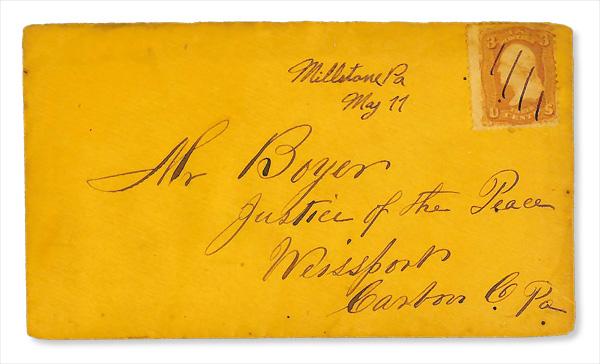 3 3
U CENTS S
Millstone Pa
May 11
Mr Boyer
Justice of the Peace
Weissport
Carbon Co Pa